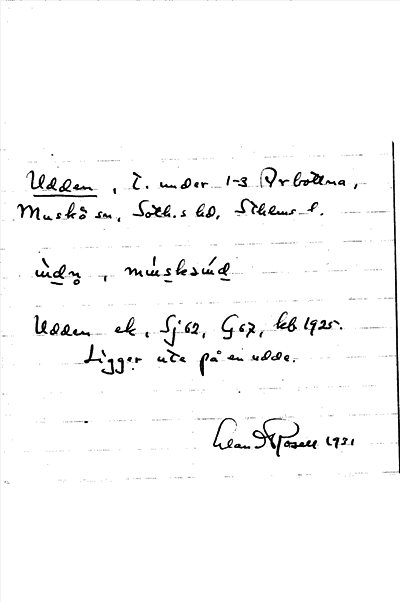 Udden, t. under 1-3 Arbottna,
Muskö sn, Soth.s hd, Sthlms l.
ùdn̥, mùskəùd
Udden ek, Sj 62, G 67, kb 1925.
Ligger ute på en udde.
Rosell 1931